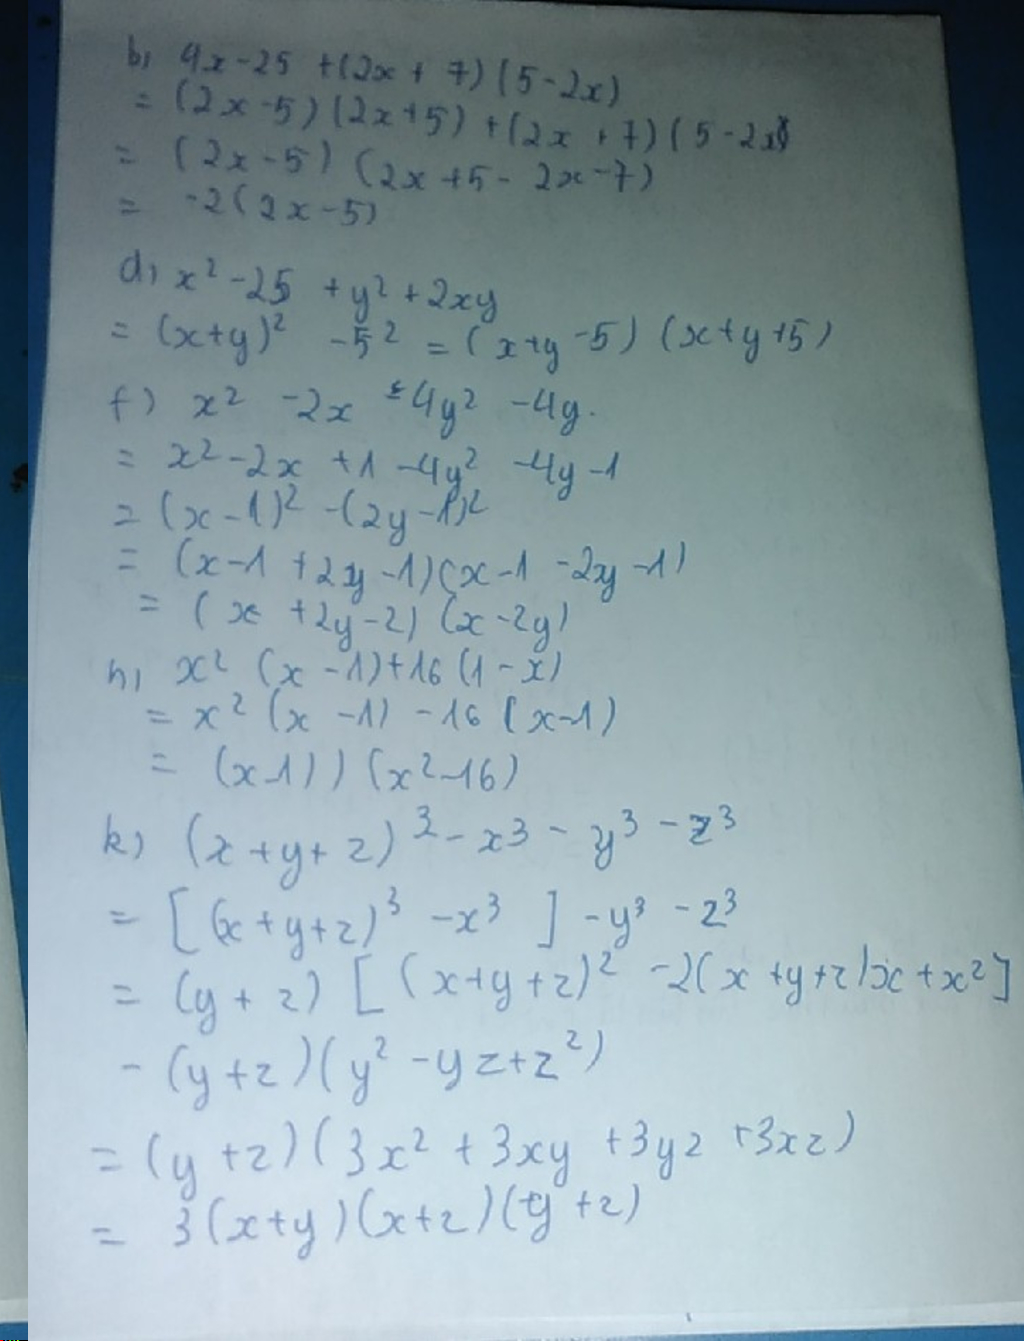 b, 4x-25 +(2x + 7)(5-2x)
= (2x-5)(2x+5) +(2x +7)(5-2x)
= (2x-5) (2x+5- 2x-7)
= -2(2x-5)
d, x² -25 +y² +2xy
= (x+y)² -5² = (x+y -5) (x+y+5)
f) x² -2x -4y² -4y.
= x²-2x +1 -4y² -4y-1
= (x-1)² -(2y-1)²
= (x-1 +2y-1)(x-1 -2y-1)
= (x +2y-2) (x-2y)
h, x² (x -1)+16 (1-x)
= x² (x -1) -16 (x-1)
= (x-1)) (x²-16)
k) (x+y+z)³ - x³ - y³ - z³
= [(x+y+z)³ -x³ ] -y³ -z³
= (y+z) [ (x+y+z)² -2(x +y+z)x +x²]
- (y+z)(y² -yz+z²)
= (y+z)(3x² + 3xy +3yz +3xz)
= 3(x+y)(x+z)(+y +z)